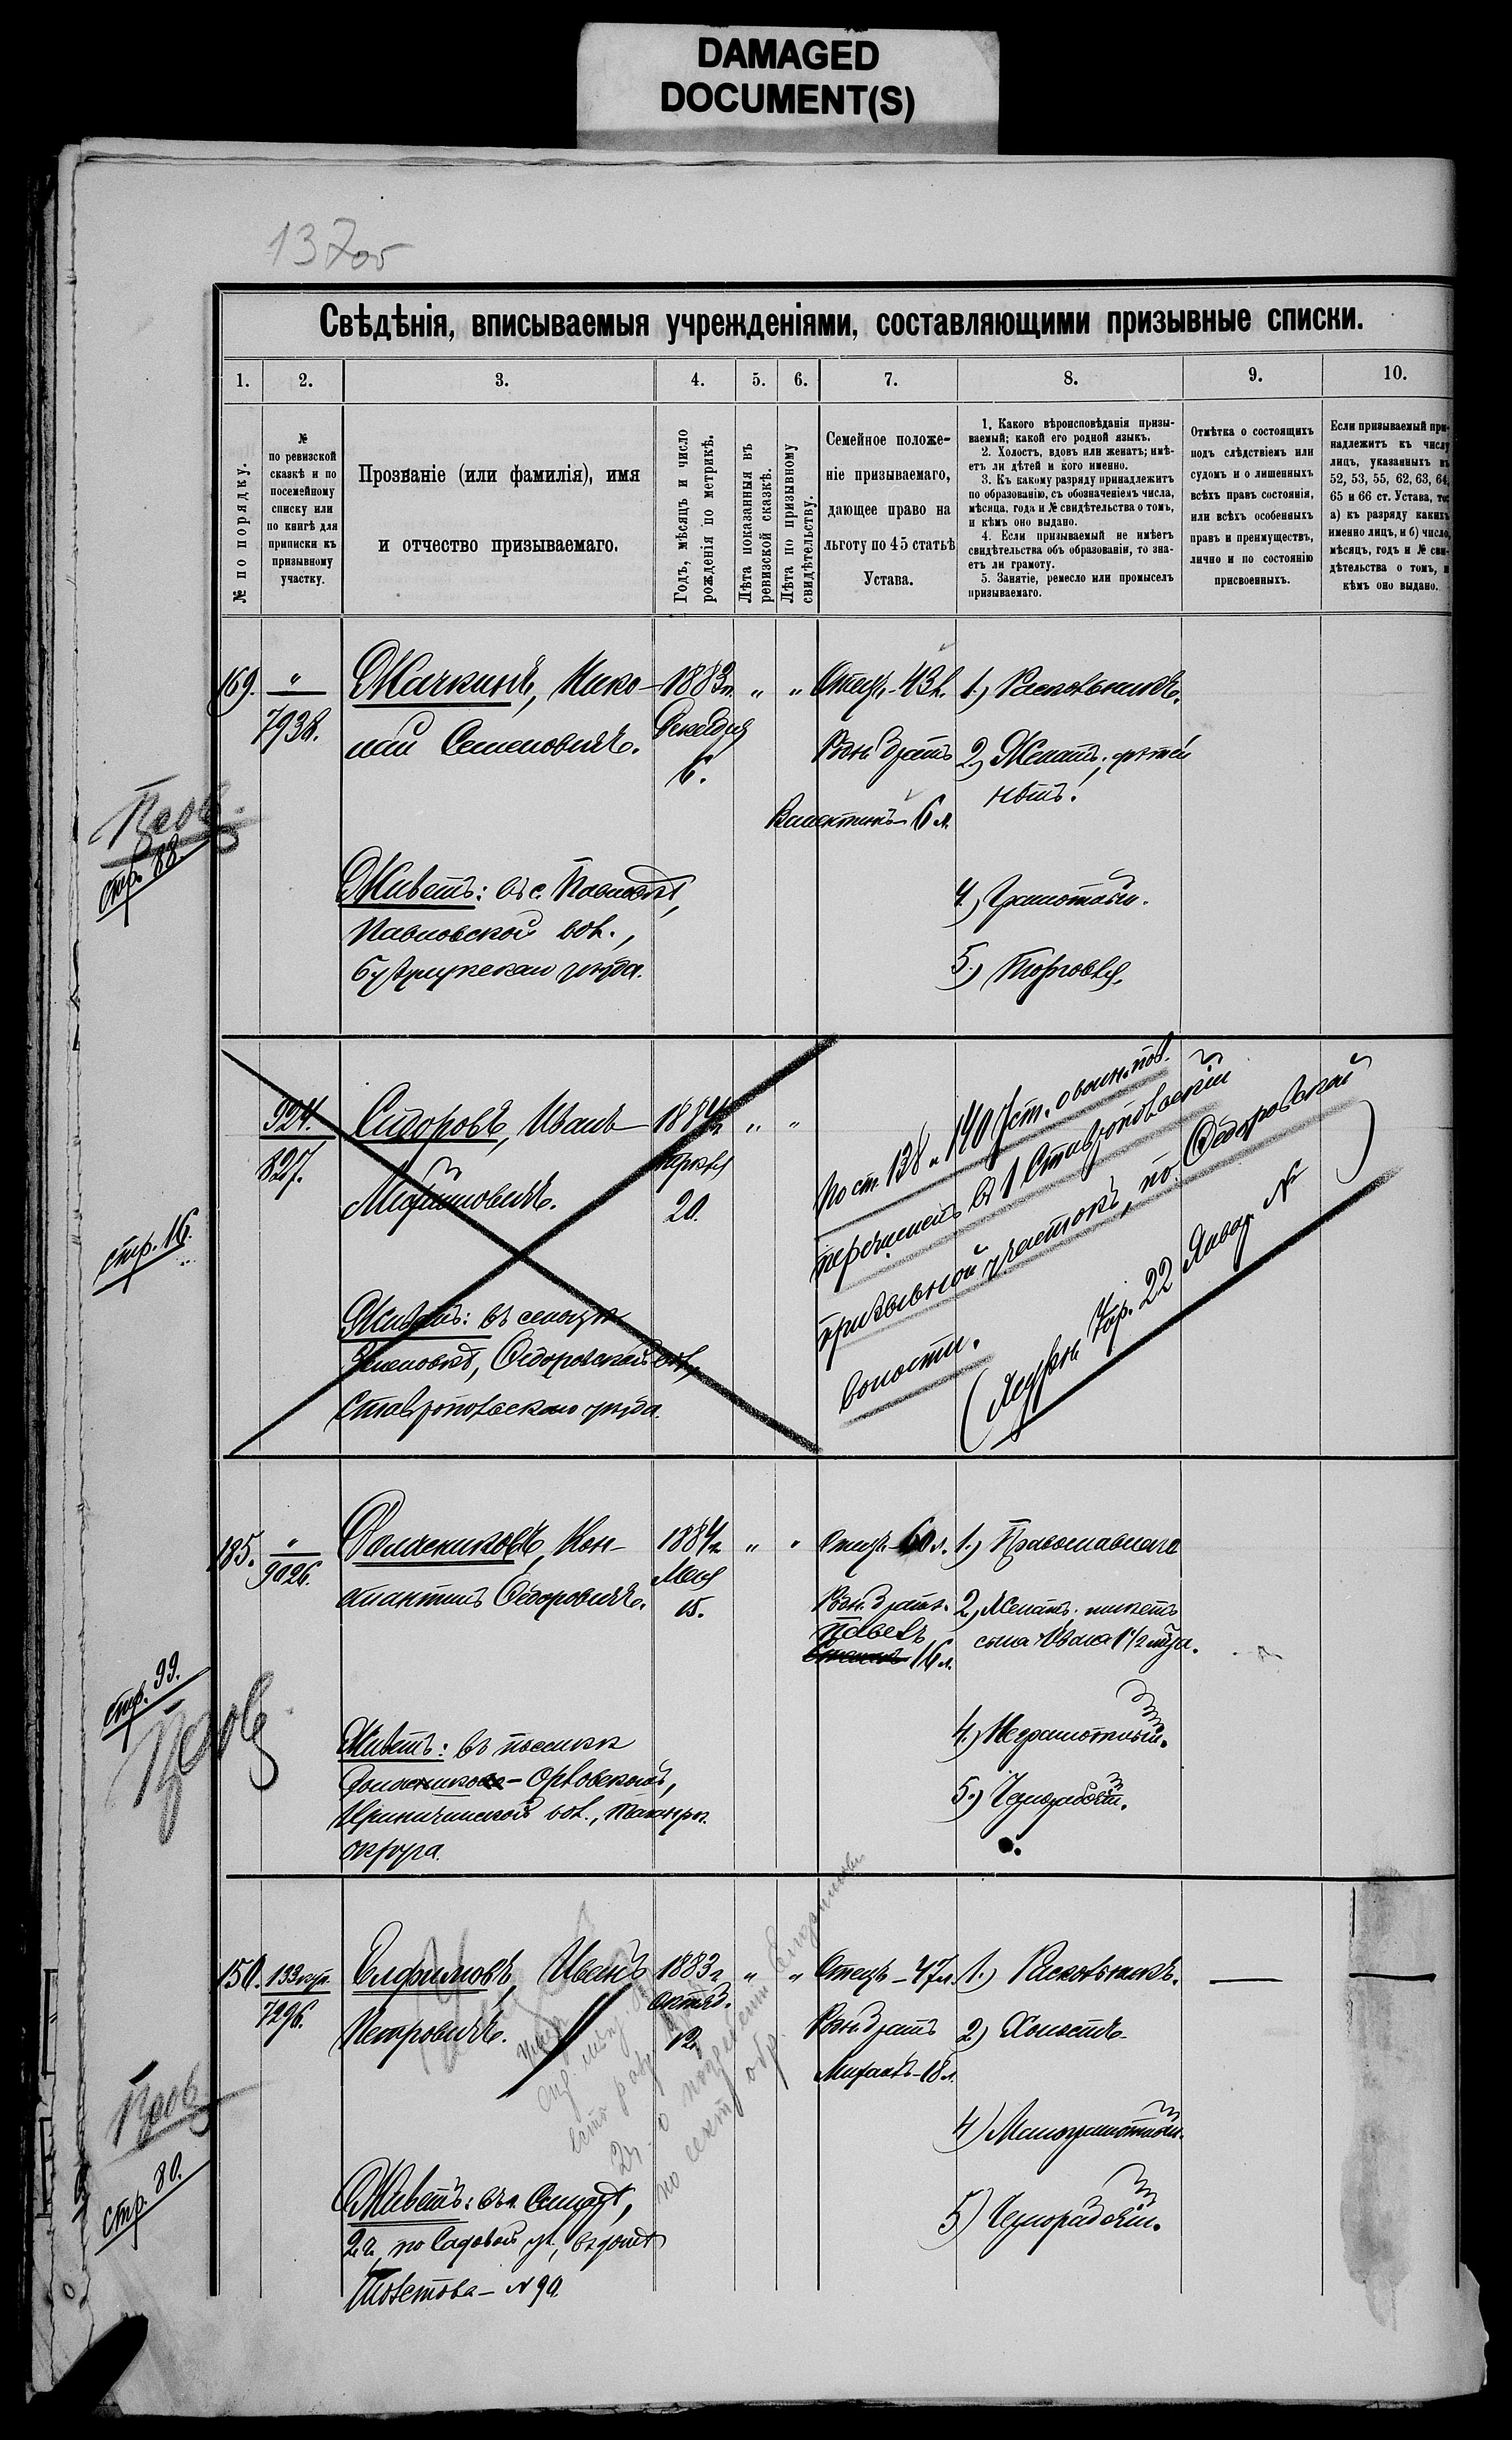 DAMAGED
DOCUMENT(S)
137об
Свѣдѣнія, вписываемыя учрежденіями, составляющими призывные списки.
1. 2. 3. 4. 5. 6. 7. 8. 9. 10.
№ по порядку.
№
по ревизской
сказкѣ и по
посемейному
списку или
по книгѣ для
приписки къ
призывному
участку.
Прозваніе (или фамилія), имя
и отчество призываемаго.
Годъ, мѣсяцъ и число
рожденія по метрикѣ.
Лѣта показанныя въ
ревизской сказкѣ.
Лѣта по призывному
свидѣтельству.
Семейное положе-
ніе призываемаго,
дающее право на
льготу по 45 статьѣ
Устава.
1. Какого вѣроисповѣданія призы-
ваемый; какой его родной языкъ.
2. Холостъ, вдовъ или женатъ; имѣ-
етъ ли дѣтей и кого именно.
3. Къ какому разряду принадлежитъ
по образованію, съ обозначеніемъ числа,
мѣсяца, года и № свидѣтельства о томъ,
и кѣмъ оно выдано.
4. Если призываемый не имѣетъ
свидѣтельства объ образованіи, то зна-
етъ ли грамоту.
5. Занятіе, ремесло или промыселъ
призываемаго.
Отмѣтка о состоящихъ
подъ слѣдствіемъ или
судомъ и о лишенныхъ
всѣхъ правъ состоянія,
или всѣхъ особенныхъ
правъ и преимуществъ,
лично и по состоянію
присвоенныхъ.
Если призываемый при-
надлежитъ къ числу
лицъ, указанныхъ въ
52, 53, 55, 62, 63, 64,
65 и 66 ст. Устава, то:
а) къ разряду какихъ
именно лицъ, и б) число,
мѣсяцъ, годъ и № сви-
дѣтельства о томъ, и
кѣмъ оно выдано.
169. " Жачкинъ, Нико- 1883г. " " Отецъ-43л. 1.) Раскольникъ.
7938. лай Семеновичъ. Декабря
6.
Родн. братъ 2.) Женатъ, дѣтей
нѣтъ.
Валентинъ 6 л.
стр. 88.
Живетъ: въ с. Павловкѣ,
Павловской вол.,
уѣзда.
4.) Грамотный.
5.) Торговля.
924. Сидоровъ, Иванъ 1884г. " "
827. Марта
20.
стр. 16.
Живетъ: въ сельцѣ
Ѳедоровской вол.,
Ставропольскаго уѣзда.
По ст. 138 и 140 Уст. о воин. пов.
перечисленъ въ 1 Ставропольскій
призывной участокъ, по Ѳедоровской
волости.
22 Январ. №
185. " Кон- 1884г. " " Отецъ-60 л. 1.) Православнаго
9026. стантинъ Ѳедоровичъ. Мая
15.
Родн. братъ. 2.) Женатъ. имѣетъ
Павелъ сына 1 1/2 года.
16 л.
стр. 99.
Живетъ: въ поселкѣ
Орловскомъ,
вол.,
округа.
4.) Неграмотный.
5.) Чернорабочій.
150. Елфимовъ, Иванъ 1883г. " " Отецъ-47л. 1.) Раскольникъ.
7296. Петровичъ. Октяб.
12.
Родн. братъ 2.) Холостъ.
Михаилъ-18 л.
о погребеніи
4.) Малограмотный.
стр. 80.
Живетъ:
2а, по Садовой ул., въ домѣ
Толстова-№ 90.
5) Чернорабочій.